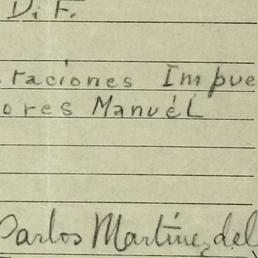 D. F.
raciones Impue
ores Manuél
Carlos Martínez del